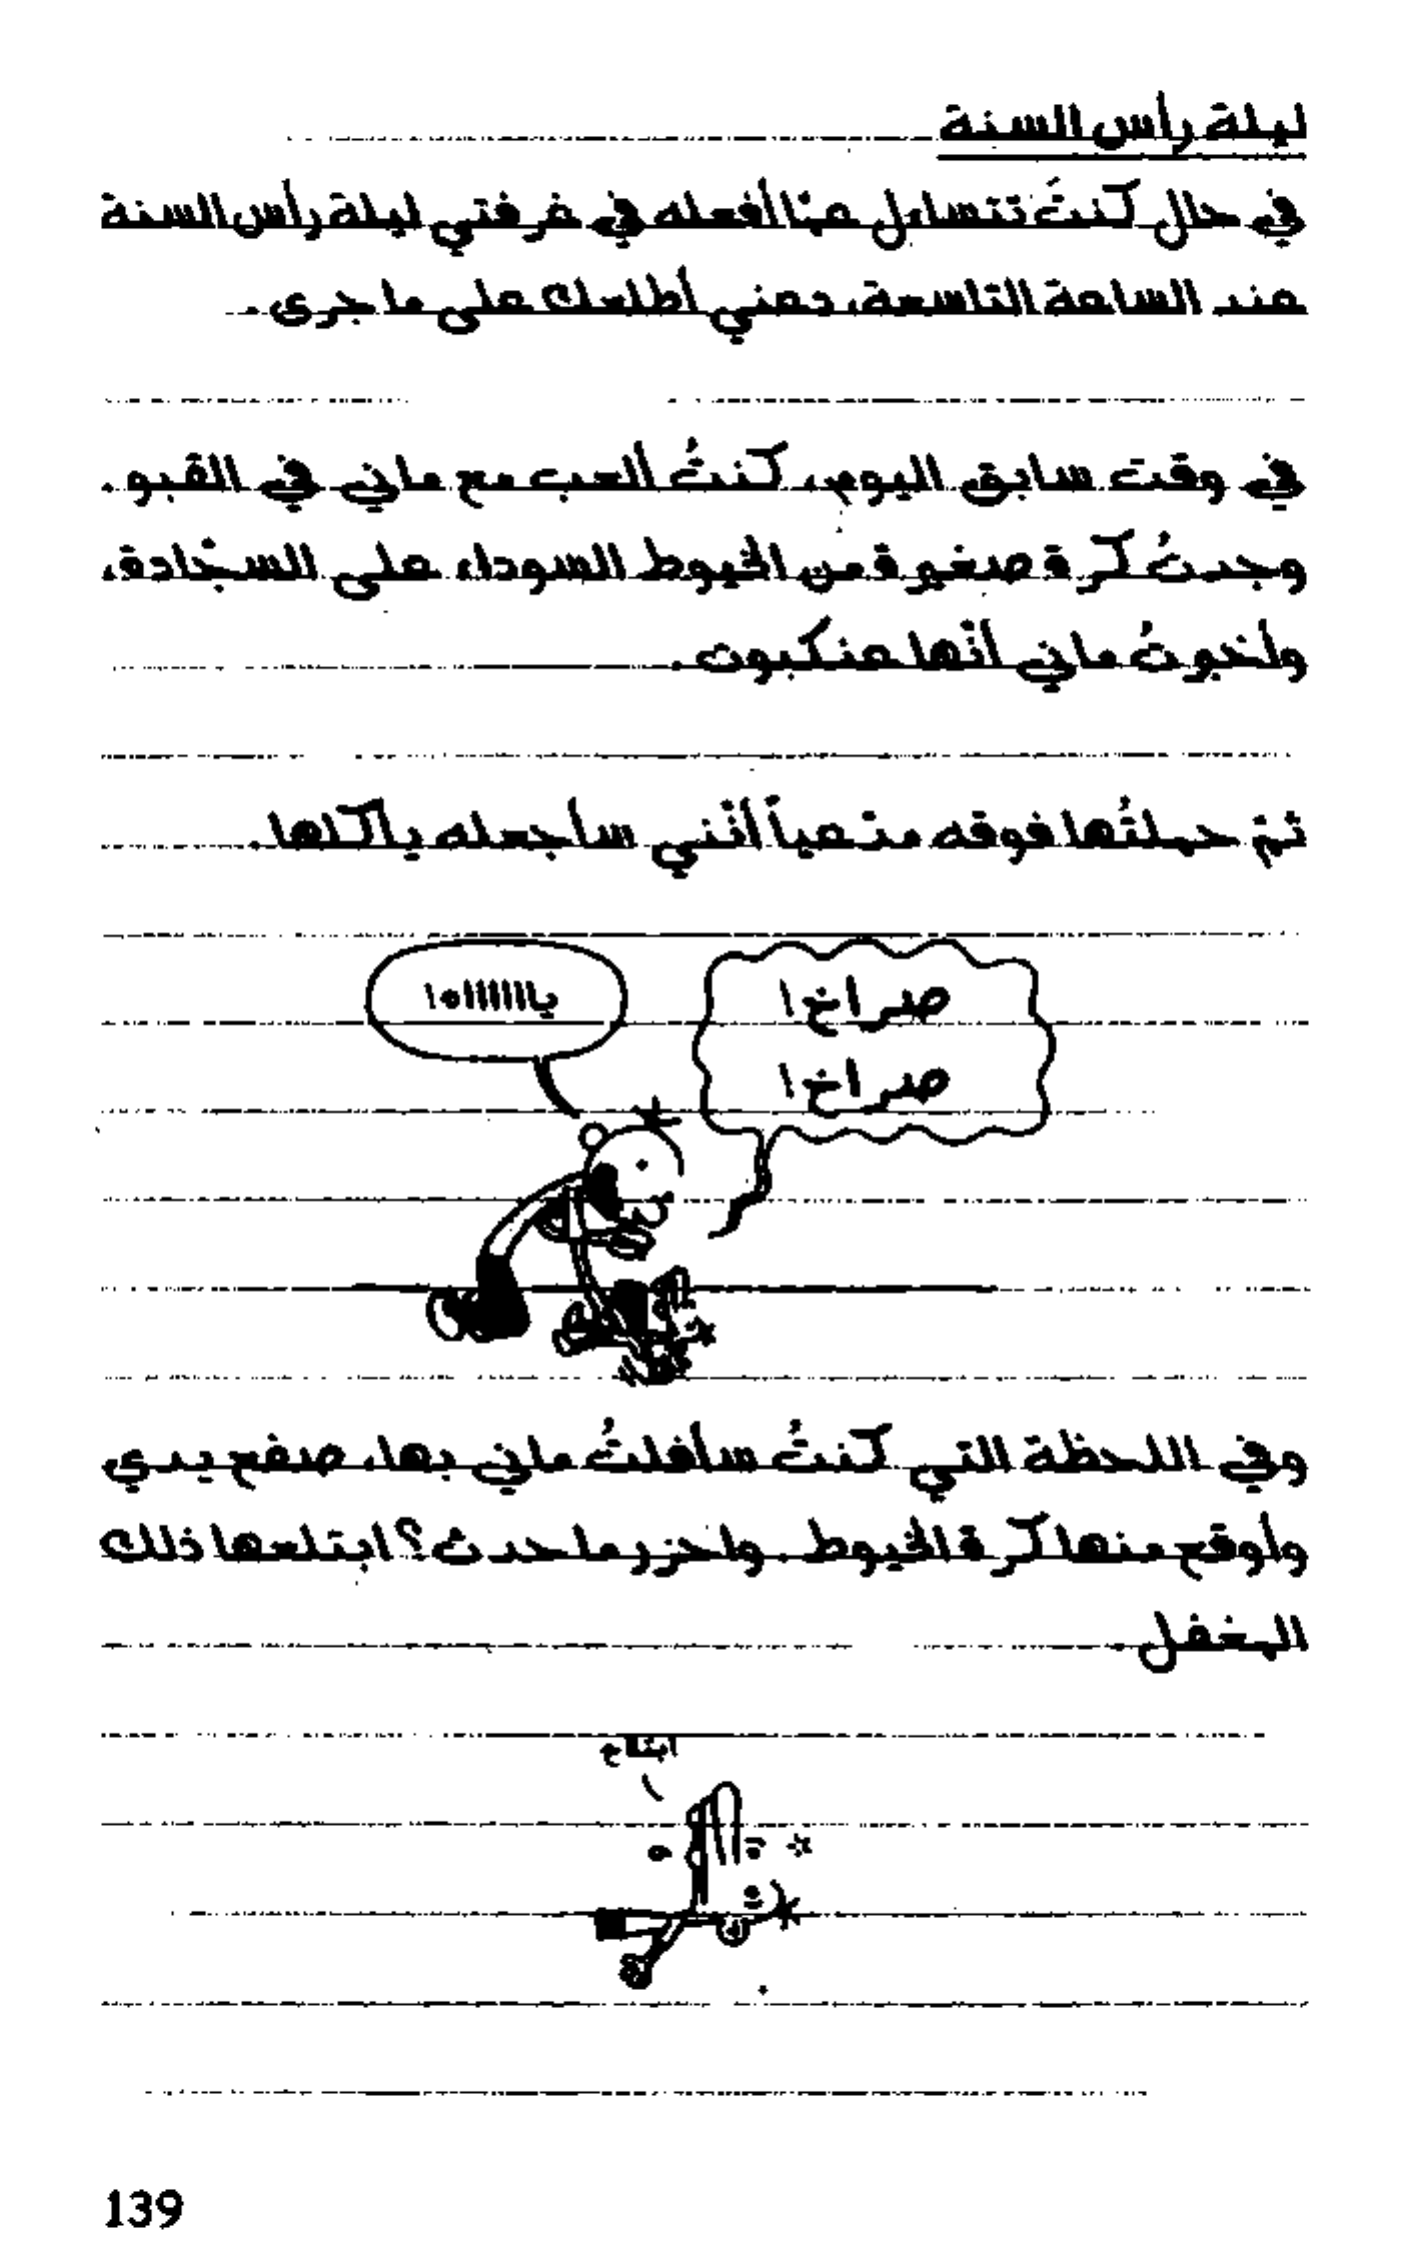 ليلة رأس السنة
في حال كنتَ تتساءل عمّا أفعله في غرفتي ليلة رأس السنة
عند الساعة التاسعة، دعني أطلعك على ما جرى.
في وقت سابق اليوم، كنتُ ألعب مع ماني في القبو.
وجدتُ كرة صغيرة من الخيوط السوداء على السجّادة،
وأخبرتُ ماني أنّها عنكبوت.
ثمّ حملتُها فوقه مدّعياً أنّني سأجعله يأكلها.
صراخ!
صراخ!
يااااااه!
وفي اللحظة التي كنتُ سأفلتُ ماني بها، صفع يدي
وأوقع منها كرة الخيوط. واحزر ما حدث؟ ابتلعها ذلك
المغفل.
ابتلاع
139